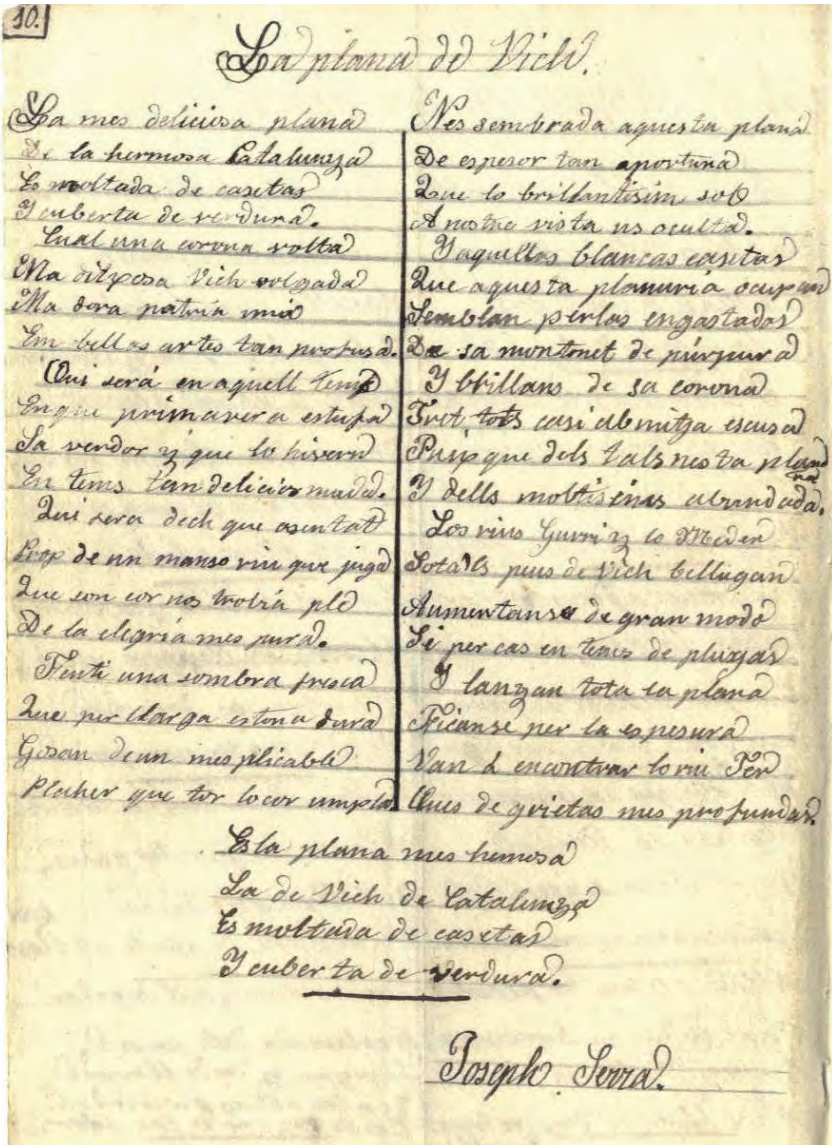 10.
La plana de Vich.
La mes deliciosa plana
De la hermosa Catalunya
Es moltada de casetas
Y cuberta de verdura.
Cual una corona volta
Ma ditxosa Vich volguda
Ma dora patria mia
Em bellas artes tan profusa.
Qui será en aquell temp
En que primavera estufa
Sa verdor y que lo hivern
En tems tan delicios muda.
Qui sera dech que asentat
Prop de un manso riu que juga
Que son cor nos trobia ple
De la alegría mes pura.
Tenti una sombra fresca
Que per llarga estona dura
Gosan de un inesplicable
Plaher que tor lo cor umpla
Nes sembrada aquesta plana
De espesor tan aportuna
Que lo brillantisim sol
A nostre vista us oculta.
Y aquellas blancas casetas
Que aquesta planuria ocupan
Semblan perlas engastadas
De sa montonet de púrpura
Y brillans de sa corona
Trot tots casi ab mitja escusa
Puix que dels tals nes ta plana
Y dells moltisims abundada.
Los rius Gurri y lo Meder
Sota ls peus de Vich bellugan
Aumentanse de gran modo
Si per cas en tems de plujas
Y lanzan tota la plana
Ficanse per la espesura
Van á encontrar lo riu Ter
Ques de grietas mes profundas.
Es la plana mes hemosa
La de Vich de Catalunya
Es moltada de casetas
Y cuberta de verdura.
Joseph Serra.